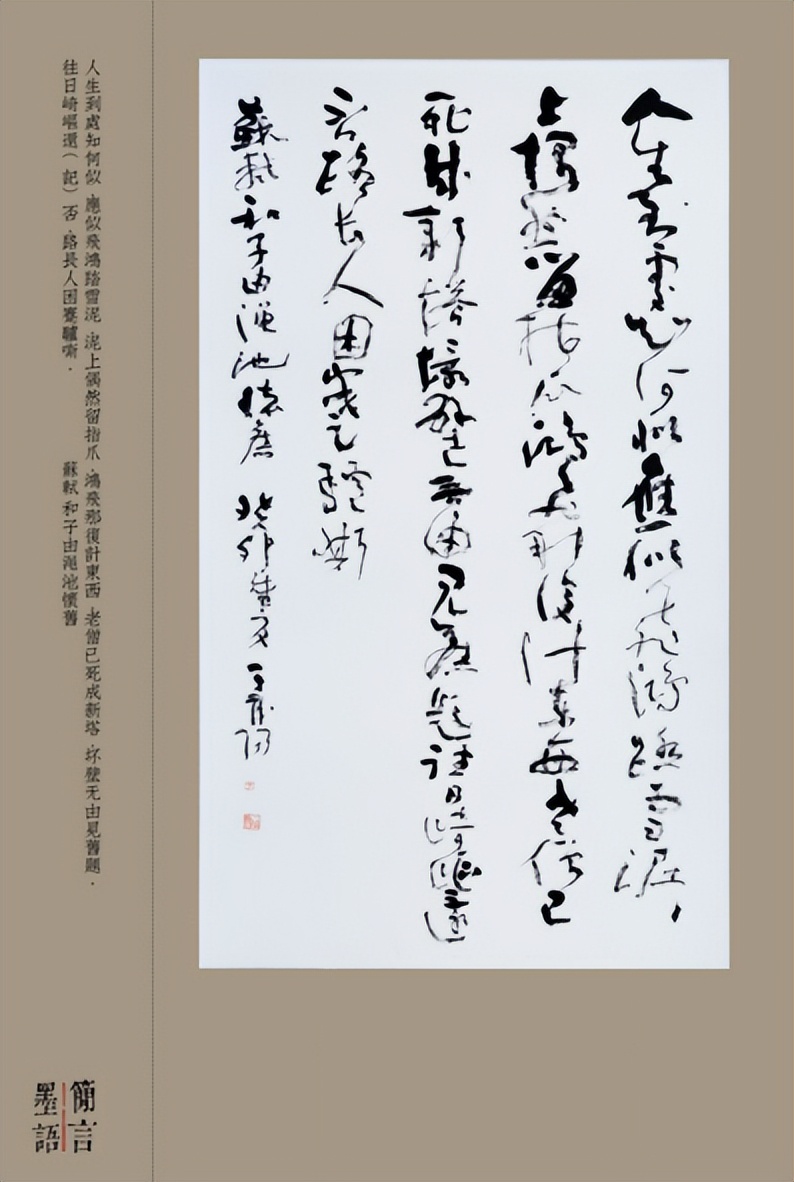 人生到處知何似應似飛鴻踏雪泥、
上偶然留指爪鴻飛那復計東西老僧已
死成新塔壞壁無由見舊題往日崎嶇還
否路長人困蹇驢嘶
蘇軾和子由澠池懷舊 癸卯
人生到處知何似．應似飛鴻踏雪泥．泥上偶然留指爪．鴻飛那復計東西．老僧已死成新塔．坏壁无由見舊題．
往日崎嶇還（記）否．路長人困蹇驢嘶．
蘇軾 和子由澠池懷舊
簡言
墨語